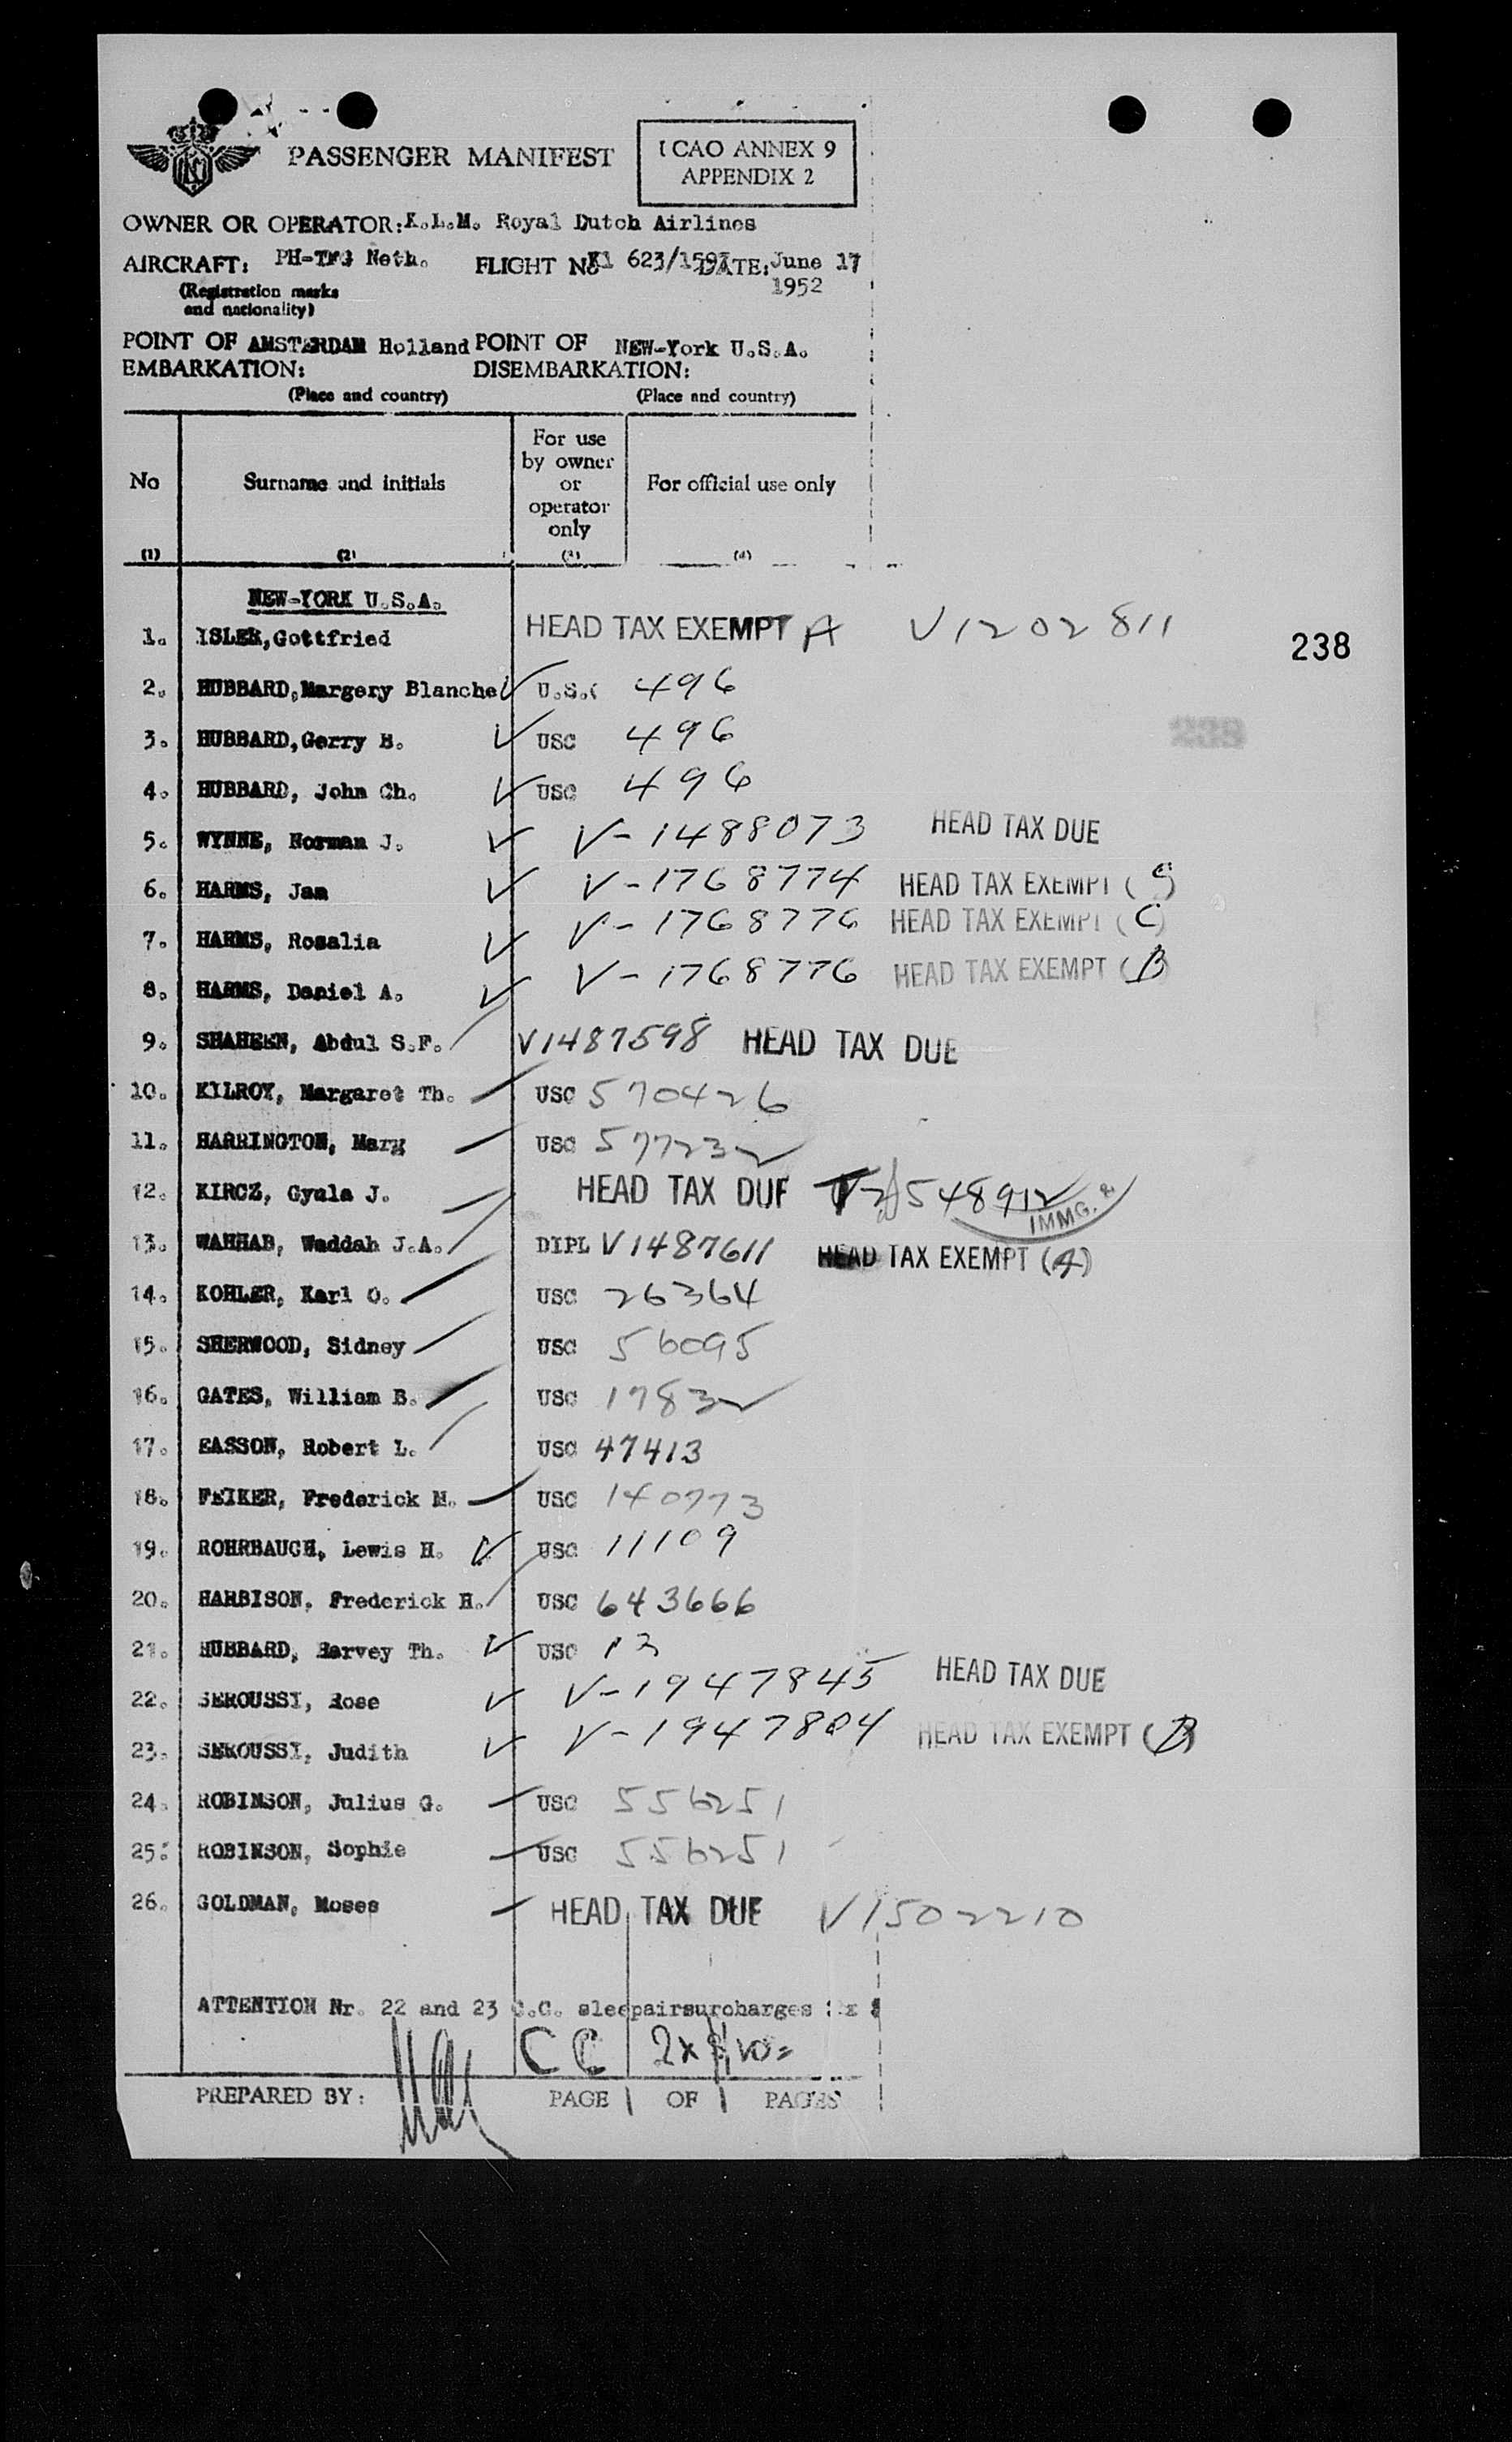 PASSENGER MANIFEST
ICAO ANNEX 9
APPENDIX 2
OWNER OR OPERATOR: K.L.M. Royal Dutch Airlines
AIRCRAFT: Neth. FLIGHT No Kl 623/1593 DATE: June 17
1952
(Registration marks
and nationality)
POINT OF AMSTERDAM Holland POINT OF NEW-York U.S.A.
EMBARKATION: DISEMBARKATION:
(Place and country) (Place and country)
No Surname and initials For use by owner or operator only For official use only
(1) (2) (3) (4)
NEW-YORK U.S.A.
1. ISLER, Gottfried HEAD TAX EXEMPT A V1202811
238
2. HUBBARD, Margery Blanche U.S.C 496
3. HUBBARD, Gerry B. USC 496
238
4. HUBBARD, John Ch. USC 496
5. WYNNE, Norman J. V-1488073 HEAD TAX DUE
6. HARMS, Jan V-1768774 HEAD TAX EXEMPT (C)
7. HARMS, Rosalia V-1768776 HEAD TAX EXEMPT (C)
8. HARMS, Daniel A. V-1768776 HEAD TAX EXEMPT (B)
9. SHAHEEN, Abdul S.F. V1487598 HEAD TAX DUE
10. KILROY, Margaret Th. USC 570426
11. HARRINGTON, Mary USC 577232
12. KIRCZ, Gyula J. HEAD TAX DUE 548912
IMMG. &
13. WAHHAB, Waddah J.A. DIPL V1487611 HEAD TAX EXEMPT (A)
14. KOHLER, Karl O. USC 26364
15. SHERWOOD, Sidney USC 56095
16. GATES, William B. USC 17832
17. EASSON, Robert L. USC 47413
18. FEIKER, Frederick M. USC 140773
19. ROHRBAUGH, Lewis H. USC 11109
20. HARBISON, Frederick H. USC 643666
21. HUBBARD, Harvey Th. USC 13
22. SEROUSSI, Rose V-1947845 HEAD TAX DUE
23. SEROUSSI, Judith V-1947804 HEAD TAX EXEMPT (B)
24. ROBINSON, Julius G. USC 556251
25. ROBINSON, Sophie USC 556251
26. GOLDMAN, Moses HEAD TAX DUE V1502210
ATTENTION Nr. 22 and 23 C.C. sleepairsurcharges
CC 2x
PREPARED BY: PAGE 1 OF 1 PAGES